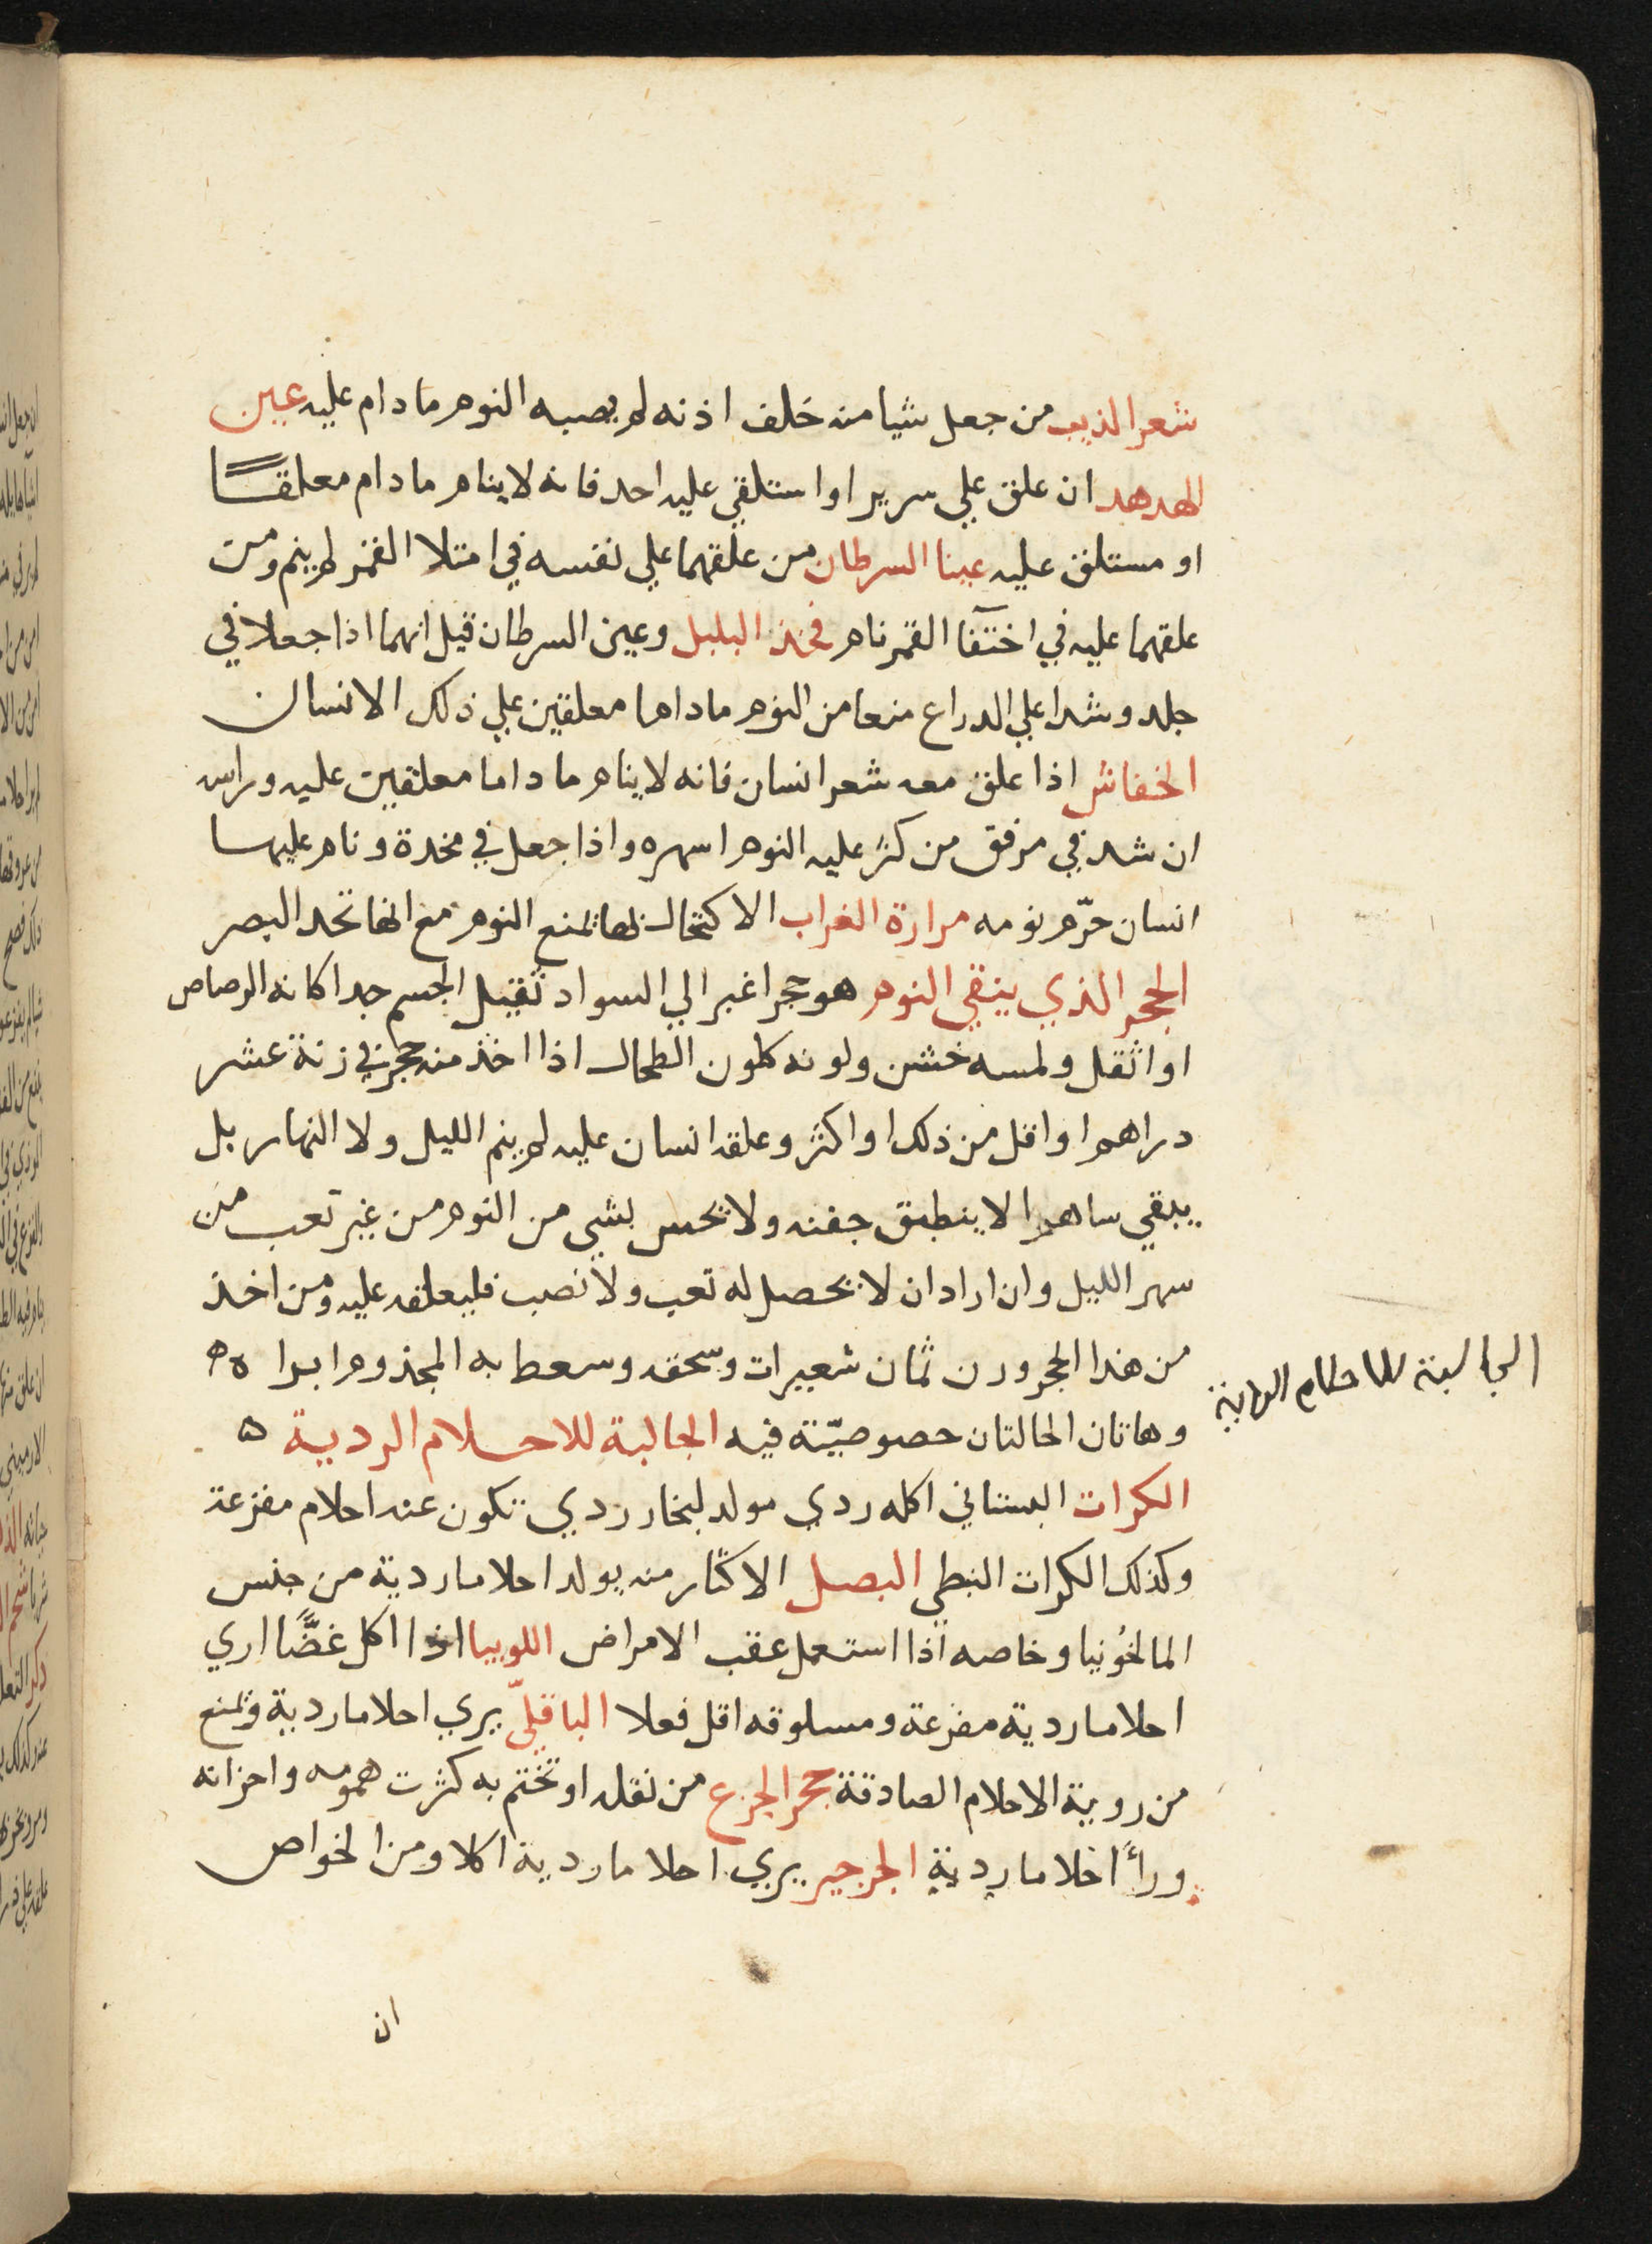 شعر الذيب من جعل شيا منه خلف اذنه لم يصبه النوم ما دام عليه عين
الهدهد ان علق علي سرير او استلقي عليه احد فانه لا ينام ما دام معلقًا
او مستلق عليه عينا السرطان من علقهما علي نفسه في امتلا القمر لم ينم ومن
علقهما عليه في اختفا القمر نام فخذ البلبل وعين السرطان قيل انهما اذا جعلا في
جلد وشدا علي الدراع منعا من النوم ما داما معلقين علي ذلك الانسان
الخفاش اذا علق معه شعر انسان فانه لا ينام ما داما معلقين عليه وراسه
ان شد في مرفق من كثر عليه النوم اسهره واذا جعل في مخدة ونام عليها
انسان حرّم نومه مرارة الغراب الاكتحال بها تمنع النوم مع انها تحد البصر
الحجر الذي ينقي النوم هو حجر اغبر الي السواد ثقيل الجسم جدا كانه الرصاص
او اثقل ولمسه خشن ولونه كلون الطحال اذا اخذ منه حجر في زنة عشر
دراهم او اقل من ذلك او اكثر وعلقه انسان عليه لم ينم الليل ولا النهار بل
يبقي ساهرا لا ينطبق جفنه ولا يحس بشي من النوم من غير تعب من
سهر الليل وان اراد ان لا يحصل له تعب ولا نصب فليعلقه عليه ومن اخذ
من هذا الحجر وزن ثمان شعيرات وسحقه وسعط به المجذوم ابرا ه ه
وهاتان الحالتان حصوصيّته فيه الجالبة للاحلام الردية ه
الجالبة للاحلام الردية
الكرات البستاني اكله ردي مولد لبخار ردي تكون عنه احلام مفزعة
وكذلك الكرات النبطي البصل الاكثار منه يولد احلاما ردية من جنس
المالخُونيا وخاصه اذا استعمل عقب الامراض اللوبيا اذا اكل غضًّا اري
احلاما ردية مفزعة ومسلوقه اقل فعلا الباقلّي يري احلاما ردية وتمنع
من روية الاحلام الصادقة حجر الجزع من نقله او تختم به كثرت همومه واحزانه
ورأً احلاما ردية الجرجير يري احلاما ردية اكلا ومن الخواص
ان